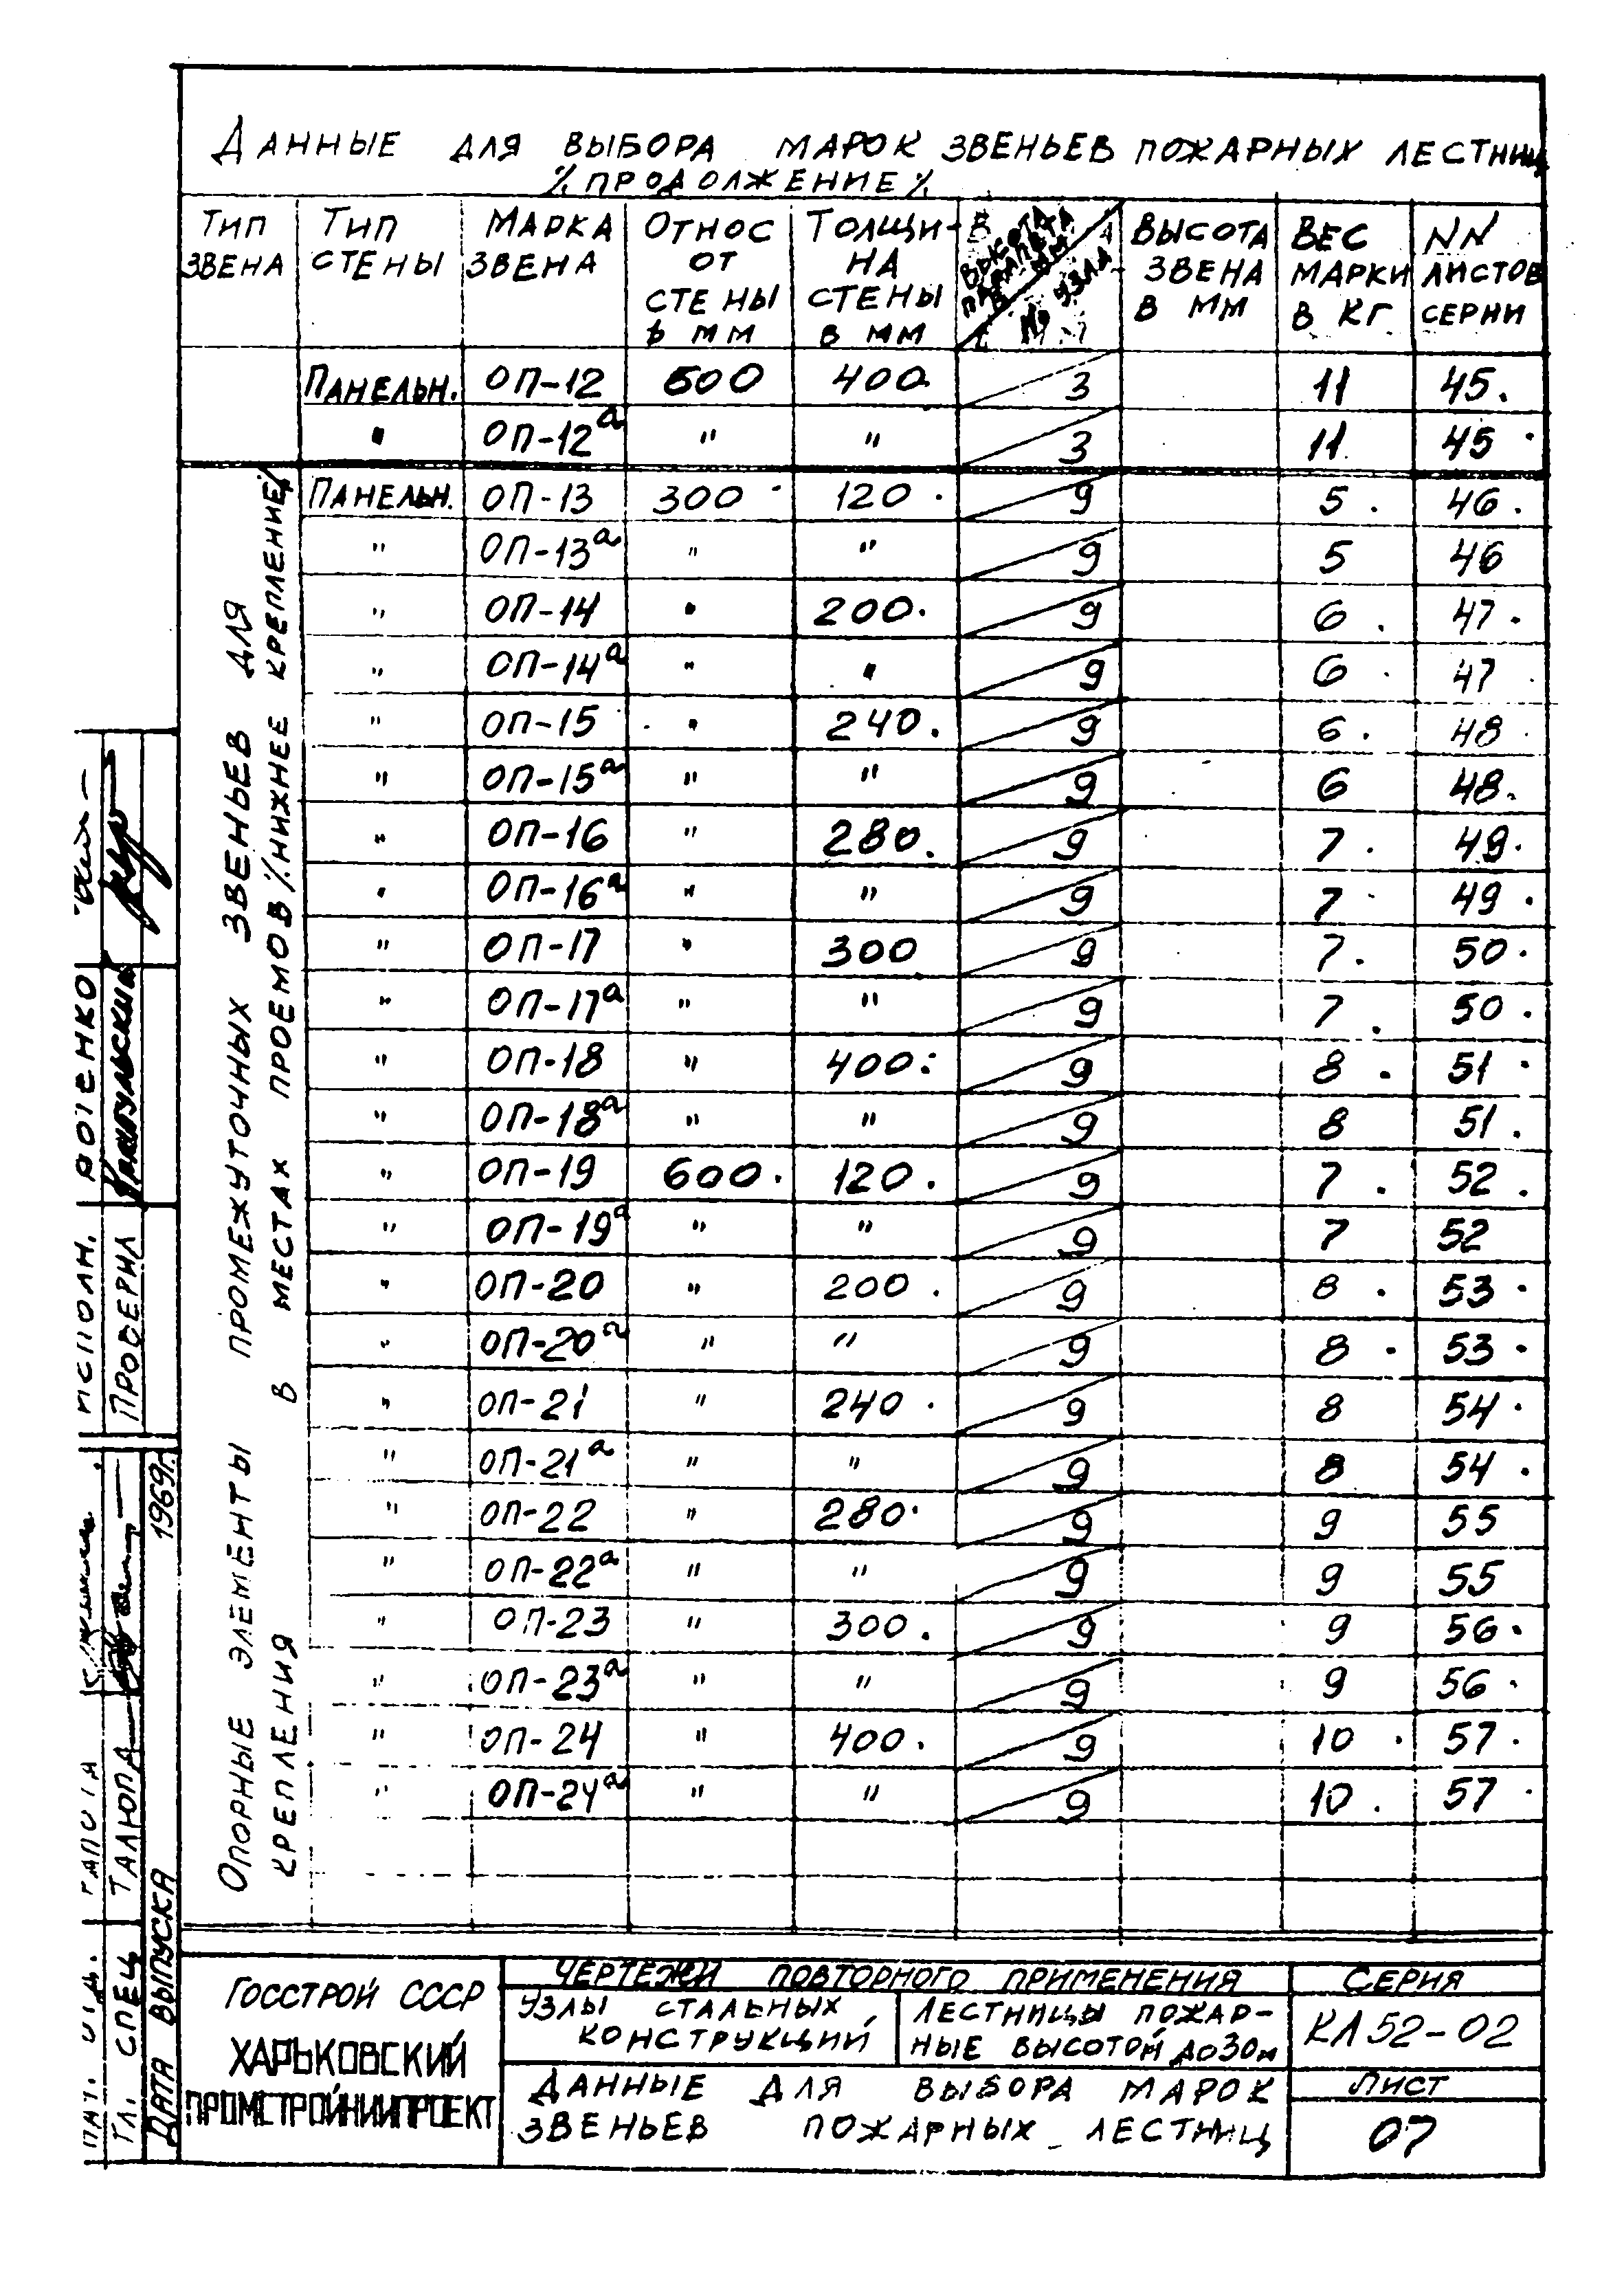 Данные для выбора марок звеньев пожарных лестниц
/продолжение/
Тип звена | Тип стены | Марка звена | Относ от стены в мм | Толщина стены в мм | Высота парапета в мм / № узла | Высота звена в мм | Вес марки в кг | NN листов серии
Панельн. ОП-12 600 400 3 11 45
" ОП-12а " " 3 11 45
Опорные элементы для промежуточных звеньев в местах проемов /нижнее крепление/
крепления
Панельн. ОП-13 300 120 9 5 46
" ОП-13а " " 9 5 46
" ОП-14 " 200 9 6 47
" ОП-14а " " 9 6 47
" ОП-15 " 240 9 6 48
" ОП-15а " " 9 6 48
" ОП-16 " 280 9 7 49
" ОП-16а " " 9 7 49
" ОП-17 " 300 9 7 50
" ОП-17а " " 9 7 50
" ОП-18 " 400 9 8 51
" ОП-18а " " 9 8 51
" ОП-19 600 120 9 7 52
" ОП-19а " " 9 7 52
" ОП-20 " 200 9 8 53
" ОП-20а " " 9 8 53
" ОП-21 " 240 9 8 54
" ОП-21а " " 9 8 54
" ОП-22 " 280 9 9 55
" ОП-22а " " 9 9 55
" ОП-23 " 300 9 9 56
" ОП-23а " " 9 9 56
" ОП-24 " 400 9 10 57
" ОП-24а " " 9 10 57
Госстрой СССР
Харьковский
ПромстройНИИпроект
Чертежи повторного применения
Узлы стальных
конструкций
Лестницы пожар-
ные высотой до 30м
Данные для выбора марок
звеньев пожарных лестниц
Серия
КЛ52-02
Лист
07
Исполн.
Проверил
Гл. спец
Дата выпуска 1969г.